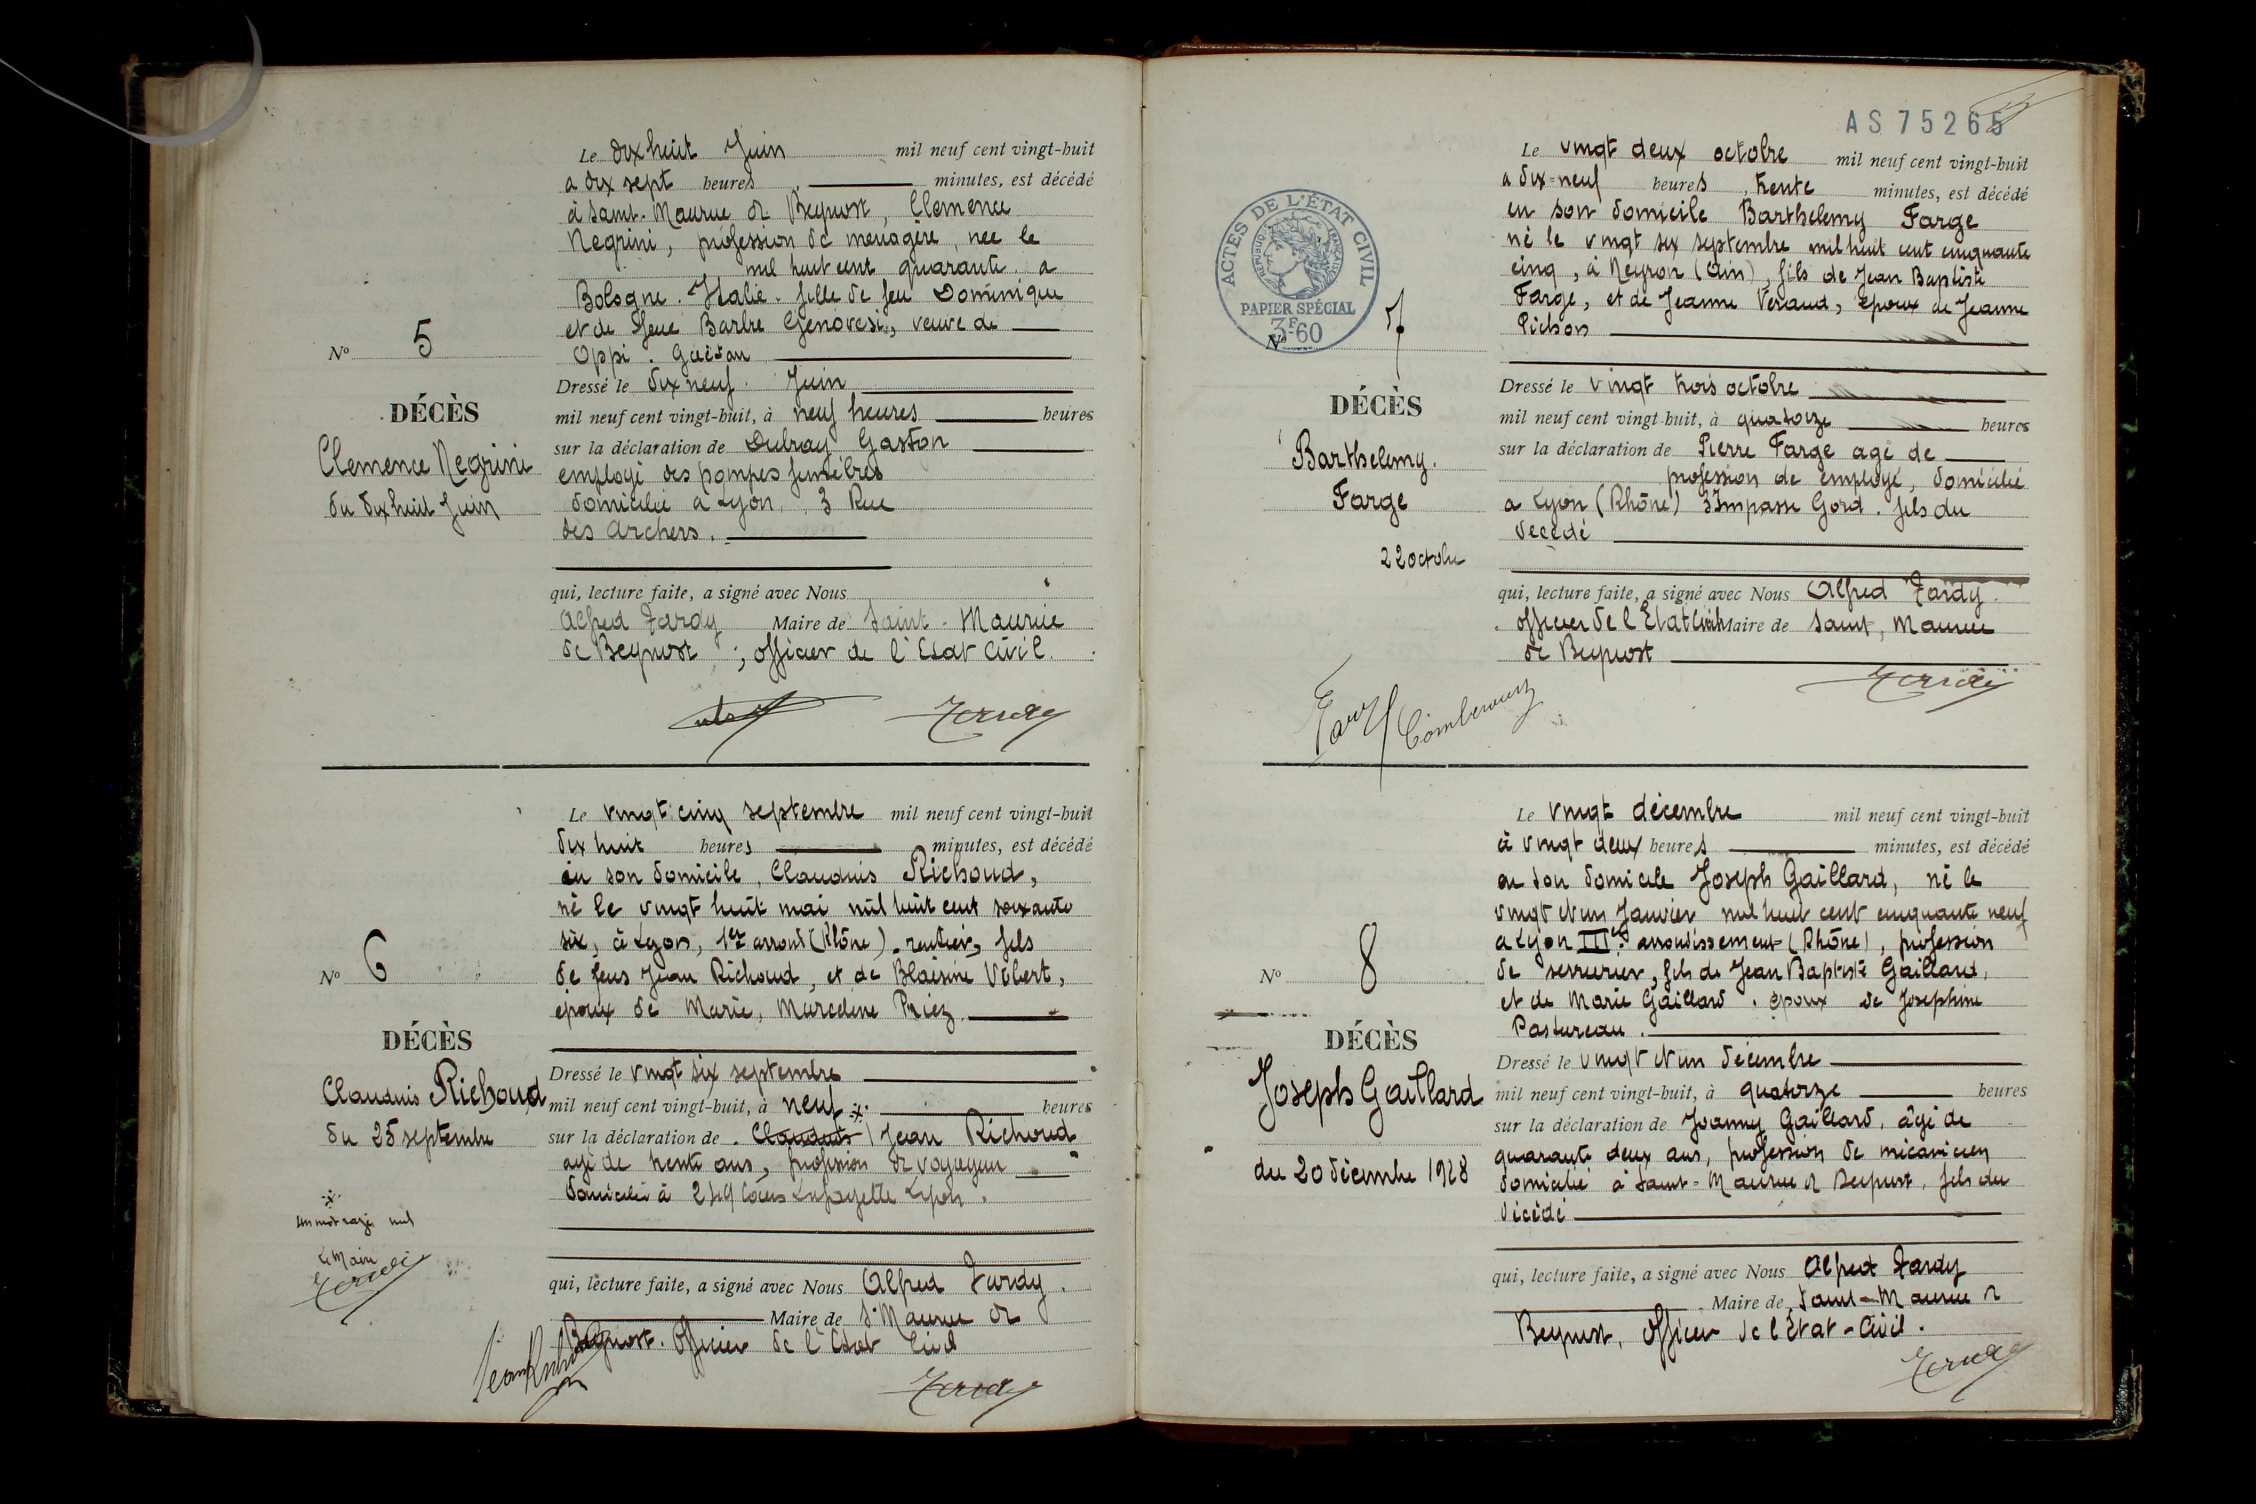 Le dix huit Juin mil neuf cent vingt-huit
a dix sept heures minutes, est décédé
à Saint-Maurice de Beynost, Clemence
Negrini, profession de menagère, née le
mil huit cent quarante a
Bologne. Italie. fille de feu Dominique
et de feue Barbe Genovesi, veuve de
Oppi. Gaëtan
Nº 5
DÉCÈS
Clemence Negrini
du dix huit Juin
Dressé le dix neuf Juin
mil neuf cent vingt-huit, à neuf heures heures
sur la déclaration de Dubray Gaston
employé des pompes funèbres
domicilié à Lyon, 3 Rue
des Archers.
qui, lecture faite, a signé avec Nous
Alfred Tardy Maire de Saint-Maurice
de Beynost ; officier de l'Etat Civil.
Tardy
Le vingt cinq septembre mil neuf cent vingt-huit
dix huit heures minutes, est décédé
en son domicile, Claudius Richoud,
né le vingt huit mai mil huit cent soixante
six, à Lyon, 1er arrond (Rhône). rentier, fils
de feus Jean Richoud, et de Blaisine Vibert,
époux de Marie, Marceline Riez.
Nº 6
DÉCÈS
Claudius Richoud
du 25 septembre
Un mot rayé nul
Le Maire
Tardy
Dressé le vingt six septembre
mil neuf cent vingt-huit, à neuf heures
sur la déclaration de Claudius Jean Richoud
agé de trente ans, profession de voyageur
domicilié à 249 Cours Lafayette Lyon.
qui, lecture faite, a signé avec Nous Alfred Tardy.
Maire de St Maurice de
Beynost. Officier de l'Etat Civil
Jean Richoud
Tardy
AS 75265
ACTES DE L'ÉTAT CIVIL
RÉPUBLIQUE FRANÇAISE
PAPIER SPÉCIAL
3F60
Le vingt deux octobre mil neuf cent vingt-huit
a dix-neuf heures, trente minutes, est décédé
en son domicile Barthelemy Farge
né le vingt six septembre mil huit cent cinquante
cinq, à Neyron (Ain), fils de Jean Baptiste
Farge, et de Jeanne Veraud, époux de Jeanne
Pichon
Nº 7
DÉCÈS
Barthelemy.
Farge
22 octobre
Dressé le vingt trois octobre
mil neuf cent vingt-huit, à quatorze heures
sur la déclaration de Pierre Farge agé de
profession de employé, domicilié
a Lyon (Rhône) 3 Impasse Gord. fils du
décédé
qui, lecture faite, a signé avec Nous Alfred Tardy.
officier de l'Etat Civil Maire de Saint, Maurice
de Beynost
Tardy
Le vingt décembre mil neuf cent vingt-huit
à vingt deux heures minutes, est décédé
en son domicile Joseph Gaillard, né le
vingt et un Janvier mil huit cent cinquante neuf
a Lyon IIIe. arrondissement (Rhône), profession
de serrurier, fils de Jean Baptiste Gaillard,
et de Marie Gaillard. époux de Josephine
Pastureau.
Nº 8
DÉCÈS
Joseph Gaillard
du 20 décembre 1928
Dressé le vingt et un décembre
mil neuf cent vingt-huit, à quatorze heures
sur la déclaration de Joanny Gaillard, âgé de
quarante deux ans, profession de mécanicien
domicilié à Saint-Maurice de Beynost, fils du
décédé
qui, lecture faite, a signé avec Nous Alfred Tardy
Maire de Saint-Maurice de
Beynost, Officier de l'Etat-Civil.
Tardy